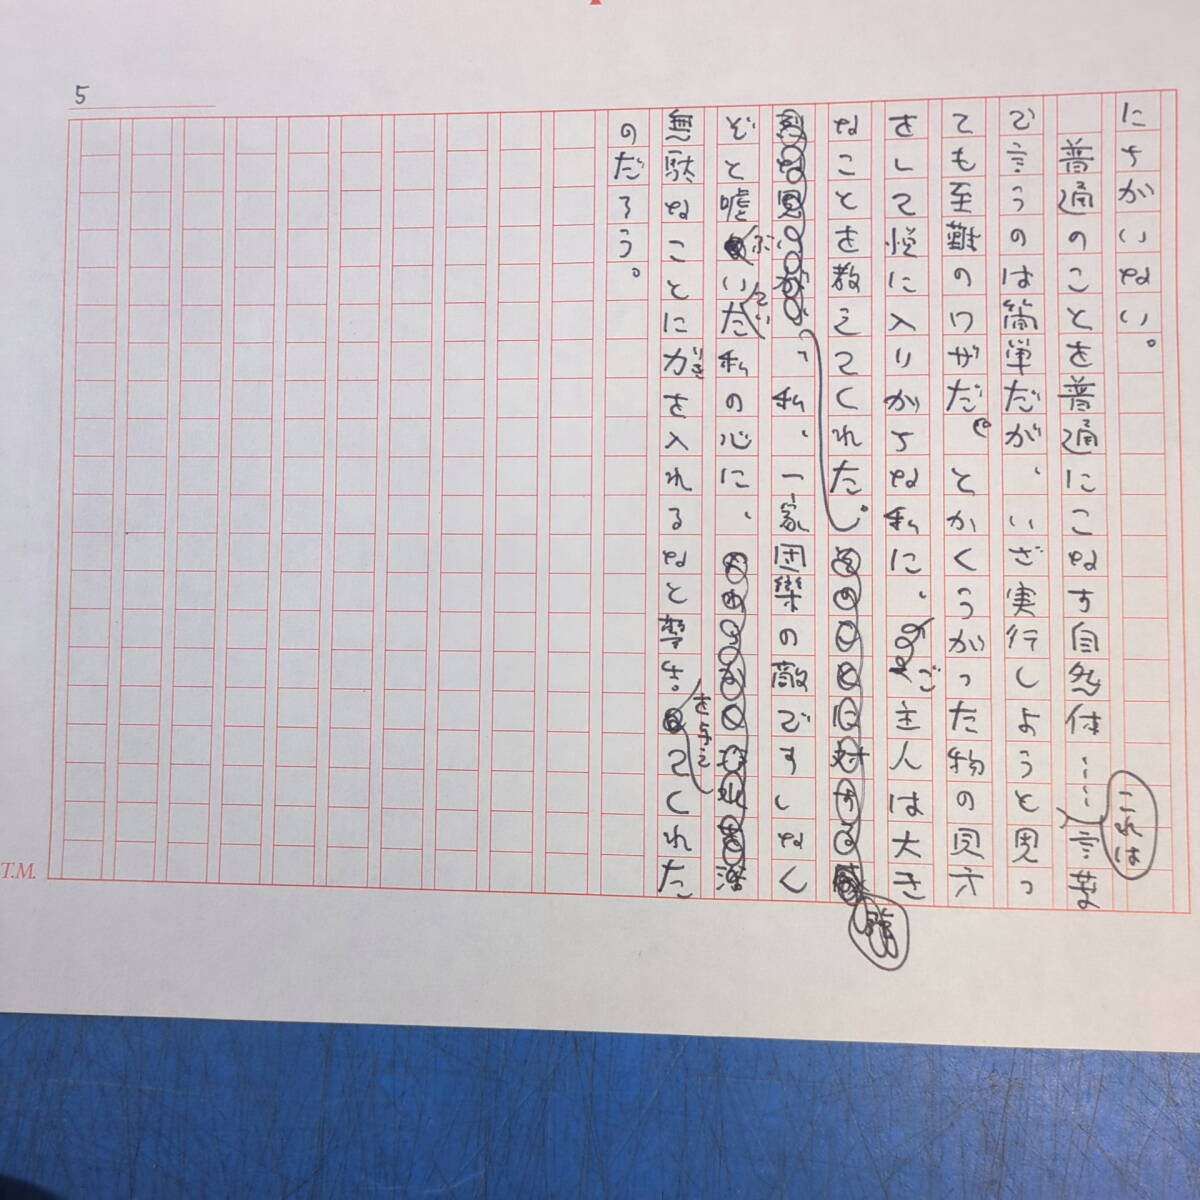 5
にちがいない。
普通のことを普通にこなす自然体……これは言葉
で言うのは簡単だが、いざ実行しようと思っ
ても至難のワザだ。とかくうがった物の見方
をして悦に入りがちな私に、ご主人は大き
なことを教えてくれた。
、私、一家団欒の敵ですしなく
ぞと嘘ぶいていた私の心に、
無駄なことに力を入れるなと
りき
を与えてくれた
のだろう。
T.M.